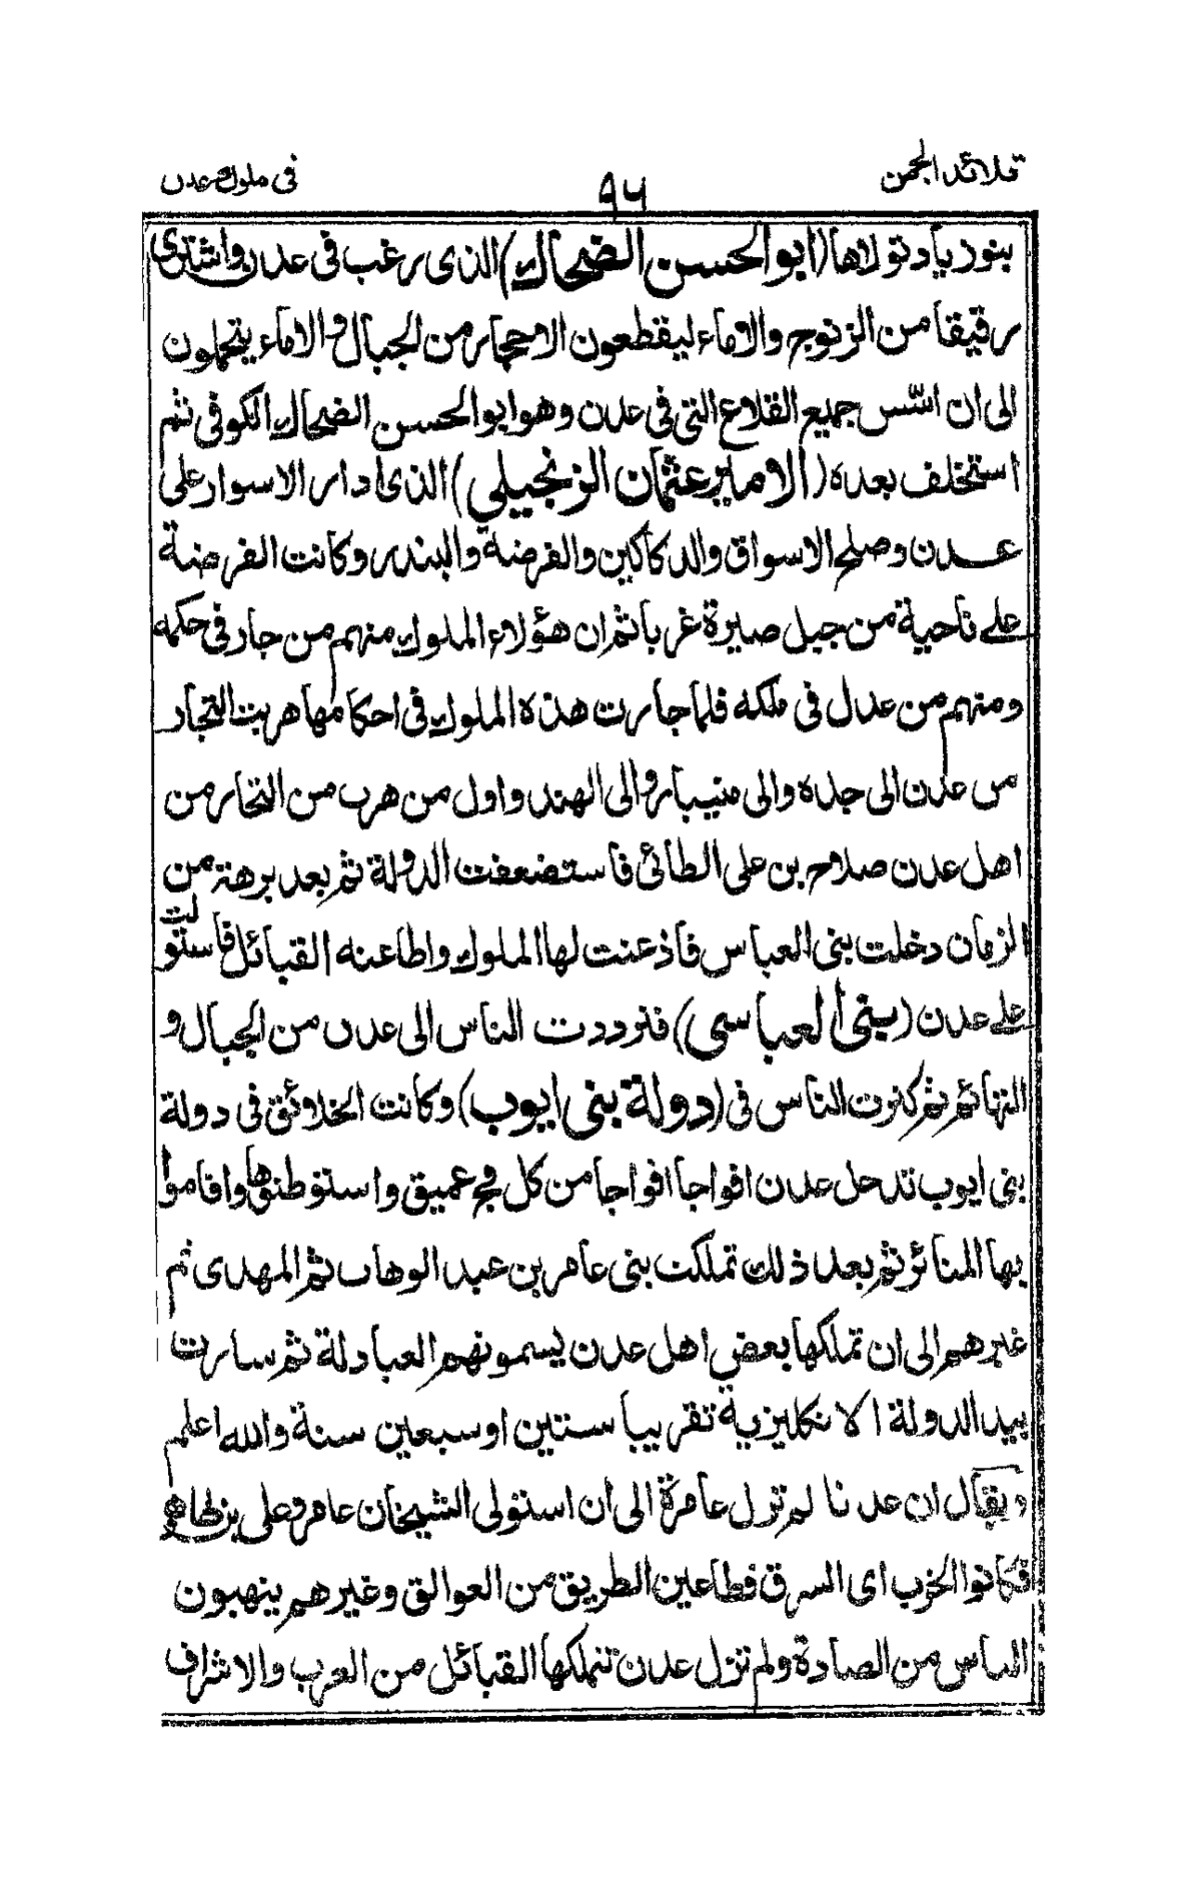 قلائد الجمن
٩٦
في ملوك عدن
بنو زياد تولاها (ابو الحسن الضحاك) الذى رغب فى عدن واشترى
رقيقا من الزنوج والاماء ليقطعون الاحجار من الجبال والاماء يتحملون
الى ان اسّس جميع القلاع التي فى عدن وهو ابو الحسن الضحاك الكوفى ثم
استخلف بعده (الامير عثمان الزنجيلي) الذى ادار الاسوار على
عدن وصلح الاسواق والدكاكين والفرضة والبندر وكانت الفرضة
على ناحية من جبل صيرة غربا ثم ان هؤلاء الملوك منهم من جار فى حكمه
ومنهم من عدل فى ملكه فلما جارت هذه الملوك فى احكامها هربت التجار
من عدن الى جده والى منيبار والى الهند واول من هرب من التجار من
اهل عدن صلاح بن على الطائى فاستضعفت الدولة ثم بعد برهة من
الزمان دخلت بنى العباس فاذعنت لها الملوك واطاعته القبائل فاستولت
على عدن (بنى العباسى) فترددت الناس الى عدن من الجبال و
التهائم ثم كثرت الناس فى (دولة بنى ايوب) وكانت الخلائق فى دولة
بنى ايوب تدخل عدن افواجا افواجا من كل فج عميق واستوطنوها واقاموا
بها المنائر ثم بعد ذلك تملكت بنى عامر بن عبد الوهاب ثم المهدى ثم
غيرهم الى ان تملكها بعض اهل عدن يسمونهم العبادلة ثم سارت
بيد الدولة الانكليزية تقريبا ستين او سبعين سنة والله اعلم
ويقال ان عدنا لم تزل عامرة الى ان استولى الشيخان عامر وعلى بن طاهر
فكانوا الخرب اى السرق قطاعين الطريق من العوالق وغيرهم ينهبون
الناس من الصادة ولم تزل عدن تتملكها القبائل من العرب والاشراف